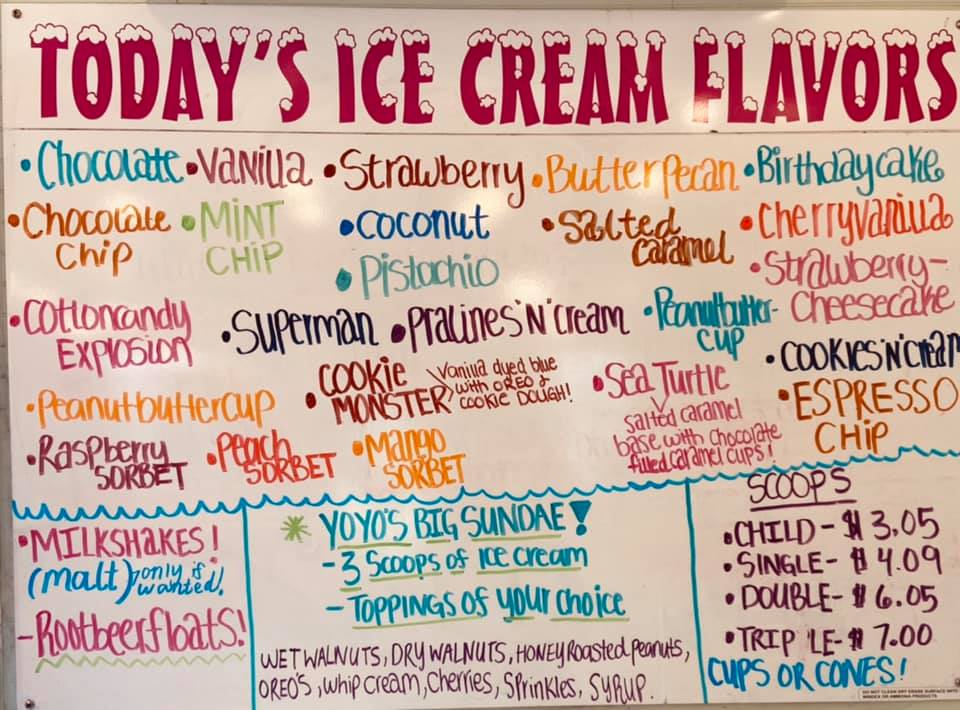 TODAY'S ICE CREAM FLAVORS
•Chocolate •Vanilla •Strawberry •Butter Pecan •Birthday cake
•Chocolate Chip
•MINT CHIP
•Coconut
•Salted Caramel
•Cherry Vanilla
•Pistachio
•Strawberry-
Cheesecake
•Cotton candy
Explosion
•Superman •Pralines 'N' Cream
•Peanutbutter-
cup
•COOKIES 'N' Cream
•Peanutbuttercup
•COOKIE
MONSTER
Vanilla dyed blue
with OREO &
COOKIE DOUGH!
•Sea Turtle
salted caramel
base with chocolate
filled caramel cups!
•ESPRESSO
CHIP
•Raspberry
SORBET
•Peach
SORBET
•Mango
SORBET
•MILKSHAKES!
(malt) only if
wanted!
-Rootbeer floats!
YOYO'S BIG SUNDAE!
-3 Scoops of Ice cream
-Toppings of your choice
WET WALNUTS, DRY WALNUTS, HONEY Roasted peanuts,
OREO'S, whip cream, cherries, Sprinkles, SYRUP.
SCOOPS
•CHILD - $3.05
•SINGLE - $4.09
•DOUBLE - $6.05
•TRIPLE - $7.00
CUPS OR CONES!
DO NOT CLEAN DRY ERASE SURFACE WITH
WINDEX OR AMMONIA PRODUCTS